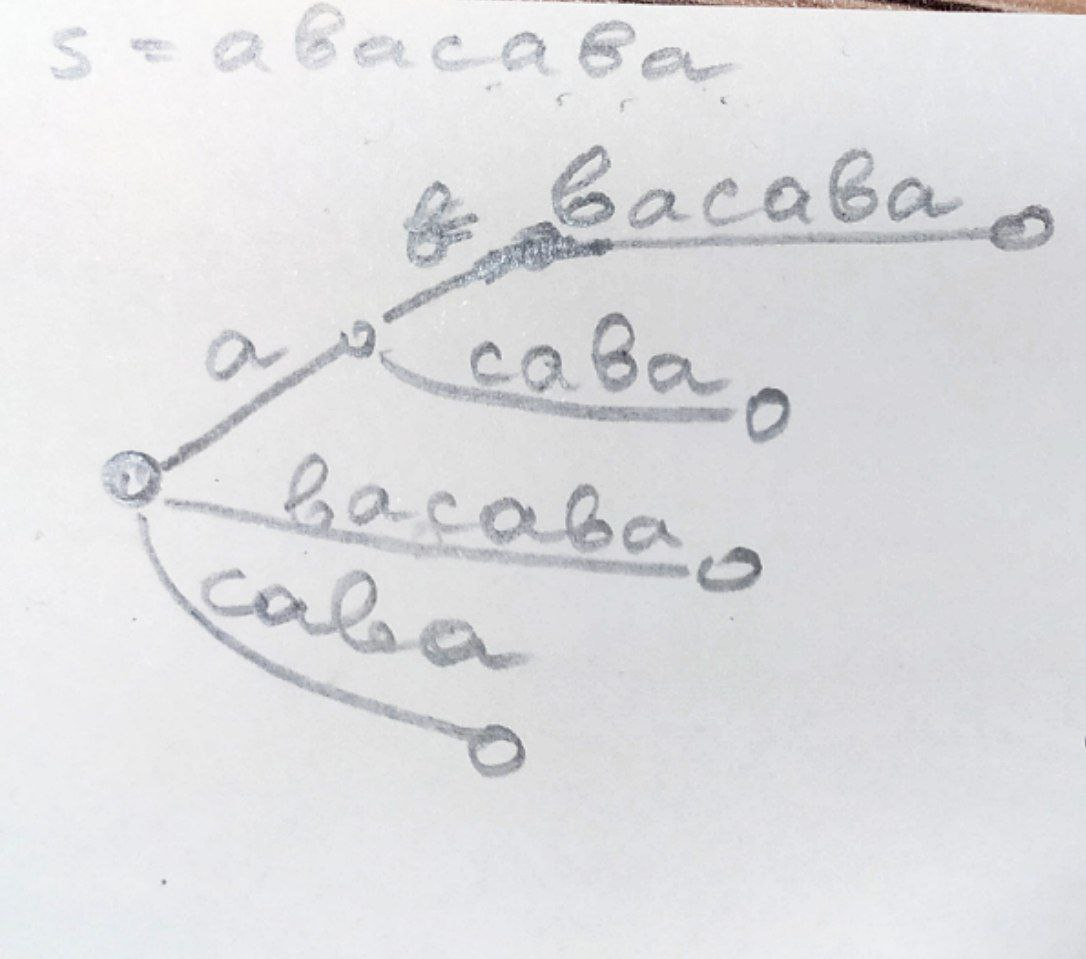 s = abacaba
bacaba
caba
a
bacaba
caba